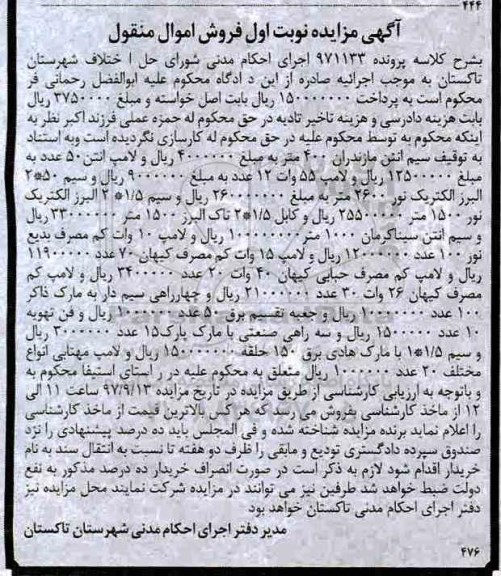 ۴۴۴
آگهی مزایده نوبت اول فروش اموال منقول
بشرح کلاسه پرونده ۹۷۱۱۳۳ اجرای احکام مدنی شورای حل ا ختلاف شهرستان
تاکستان به موجب اجرائیه صادره از این د ادگاه محکوم علیه ابوالفضل رحمانی فر
محکوم است به پرداخت ۱۵۰۰۰۰۰۰۰ ریال بابت اصل خواسته و مبلغ ۳۷۵۰۰۰۰ ریال
بابت هزینه دادرسی و هزینه تاخیر تادیه در حق محکوم له حمزه عملی فرزند اکبر نظر به
اینکه محکوم به توسط محکوم علیه در حق محکوم له کارسازی نگردیده است وبه استناد
به توقیف سیم آنتن مازندران ۴۰۰ متر به مبلغ ۴۰۰۰۰۰۰ ریال و لامپ انتن۵۰ عدد به
مبلغ ۱۲۵۰۰۰۰۰ ریال و لامپ ۵۵ وات ۱۲ عدد به مبلغ ۹۰۰۰۰۰۰ ریال و سیم ۵۰*۲
البرز الکتریک نور ۲۶۰۰ متر به مبلغ ۲۶۰۰۰۰۰۰ ریال و سیم ۱/۵* ۲ البرز الکتریک
نور ۱۵۰۰ متر ۲۵۵۰۰۰۰۰ ریال و کابل ۱/۵*۲ تاک البرز ۱۵۰۰ متر ۳۳۰۰۰۰۰۰ ریال
و سیم آنتن سیناکرمان ۱۰۰۰ متر ۱۰۰۰۰۰۰۰ ریال و لامپ ۱۰ وات کم مصرف بدیع
نور ۱۰۰ عدد ۱۲۰۰۰۰۰۰ ریال و لامپ ۱۵ وات کم مصرف کیهان ۷۰ عدد ۱۱۹۰۰۰۰۰
ریال و لامپ کم مصرف حبابی کیهان ۴۰ وات ۲۰ عدد ۳۴۰۰۰۰۰ ریال و لامپ کم
مصرف کیهان ۲۶ وات ۳۰ عدد ۲۱۰۰۰۰۰ ریال و چهارراهی سیم دار به مارک ذاکر
۱۰۰ عدد ۱۰۰۰۰۰۰۰ ریال و جعبه تقسیم برق ۵۰ عدد ۱۰۰۰۰۰۰ ریال و فن تهویه
۱۰ عدد ۱۵۰۰۰۰۰ ریال و سه راهی صنعتی با مارک پارک۱۵ عدد ۳۰۰۰۰۰۰ ریال
و سیم ۱/۵*۱ با مارک هادی برق ۱۵۰ حلقه ۱۵۰۰۰۰۰۰ ریال و لامپ مهتابی انواع
مختلف ۲۰ عدد ۱۰۰۰۰۰۰ ریال متعلق به محکوم علیه در ر استای استیفا محکوم به
و باتوجه به ارزیابی کارشناسی از طریق مزایده در تاریخ مزایده ۹۷/۹/۱۳ ساعت ۱۱ الی
۱۲ از ماخذ کارشناسی بفروش می رسد که هر کس بالاترین قیمت از ماخذ کارشناسی
را اعلام نماید برنده مزایده شناخته شده و فی المجلس باید ده درصد پیشنهادی را نزد
صندوق سپرده دادگستری تودیع و مابقی را ظرف دو هفته تا نسبت به انتقال سند به نام
خریدار اقدام شود لازم به ذکر است در صورت انصراف خریدار ده درصد مذکور به نفع
دولت ضبط خواهد شد طرفین نیز می توانند در مزایده شرکت نمایند محل مزایده نیز
دفتر اجرای احکام مدنی تاکستان خواهد بود
مدیر دفتر اجرای احکام مدنی شهرستان تاکستان
۴۷۶